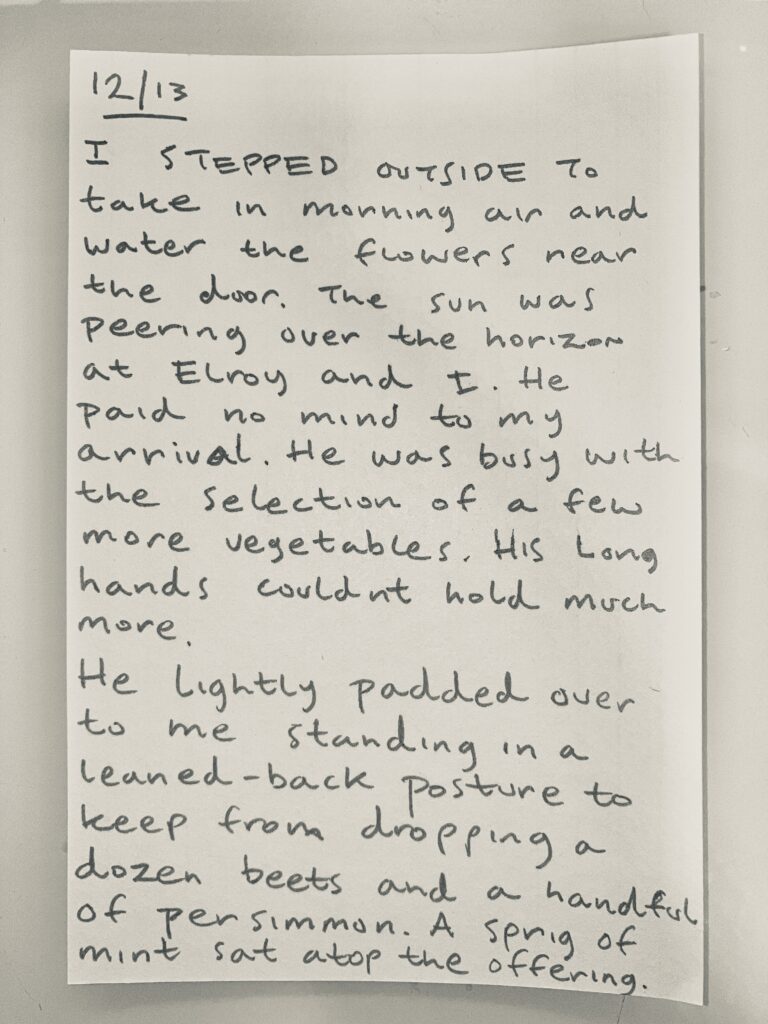 12/13
I STEPPED OUTSIDE TO
take in morning air and
water the flowers near
the door. The sun was
peering over the horizon
at Elroy and I. He
paid no mind to my
arrival. He was busy with
the selection of a few
more vegetables. His Long
hands couldnt hold much
more.
He lightly padded over
to me standing in a
leaned-back posture to
keep from dropping a
dozen beets and a handful
of persimmon. A sprig of
mint sat atop the offering.